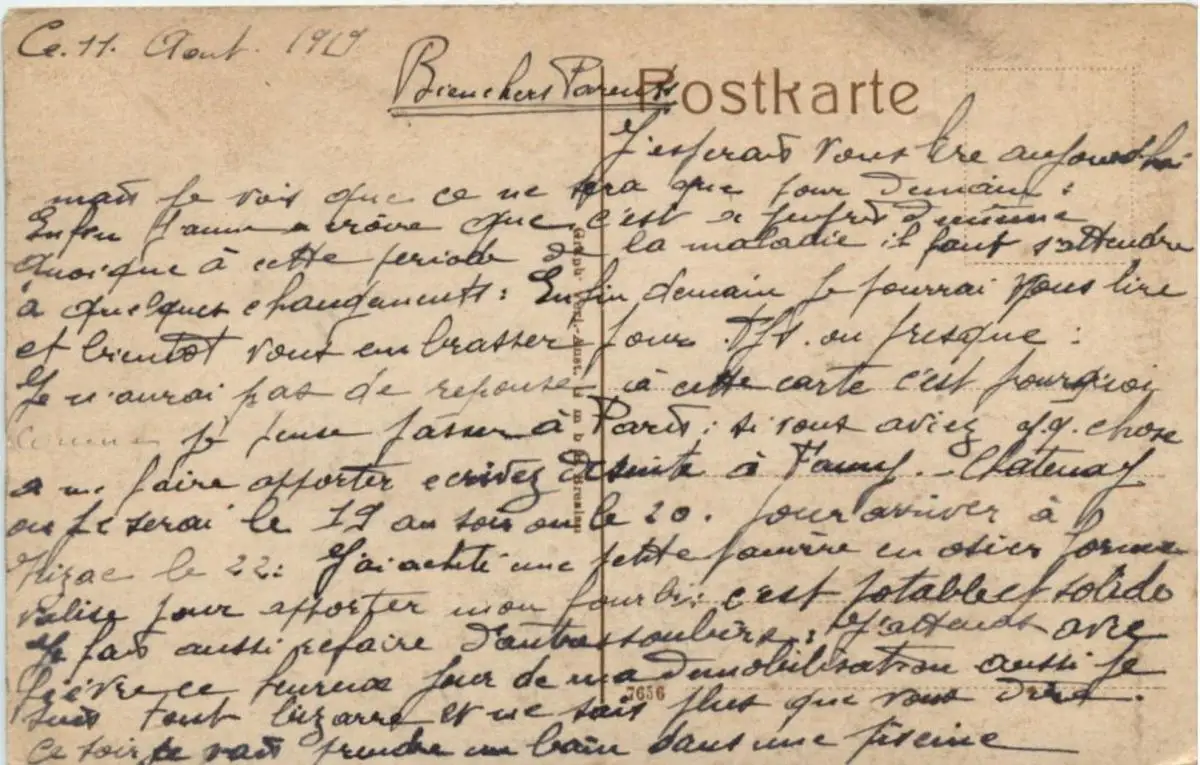 Ce. 11. Aout. 1919
Bien chers Parents
Postkarte
J'esperais vous lire aujourd'hui
mais je vois que ce ne sera que pour demain :
Enfin j'aime a croire que c'est a peu près de même
quoique à cette periode de la maladie il faut s'attendre
à quelques changements : Enfin demain je pourrai vous lire
et bientôt vous embrasser pour ou presque :
Je n'aurai pas de reponse à cette carte c'est pourquoi
comme je pense passer à Paris : si vous aviez q.q. chose
a me faire apporter ecrivez de suite à Fanny - Chatenay
ou je serai le 19 au soir ou le 20. pour arriver à
le 22 : J'ai achété une petite en osier forme
valise pour apporter mon fourbi : c'est potable et solide
Je fais aussi refaire d'autres souliers : J'attends avec
fièvre ce heureux jour de ma demobilisation aussi je
suis tout bizarre et ne sais plus que vous dire.
Ce soir je vais prendre un bain dans une piscine
7656